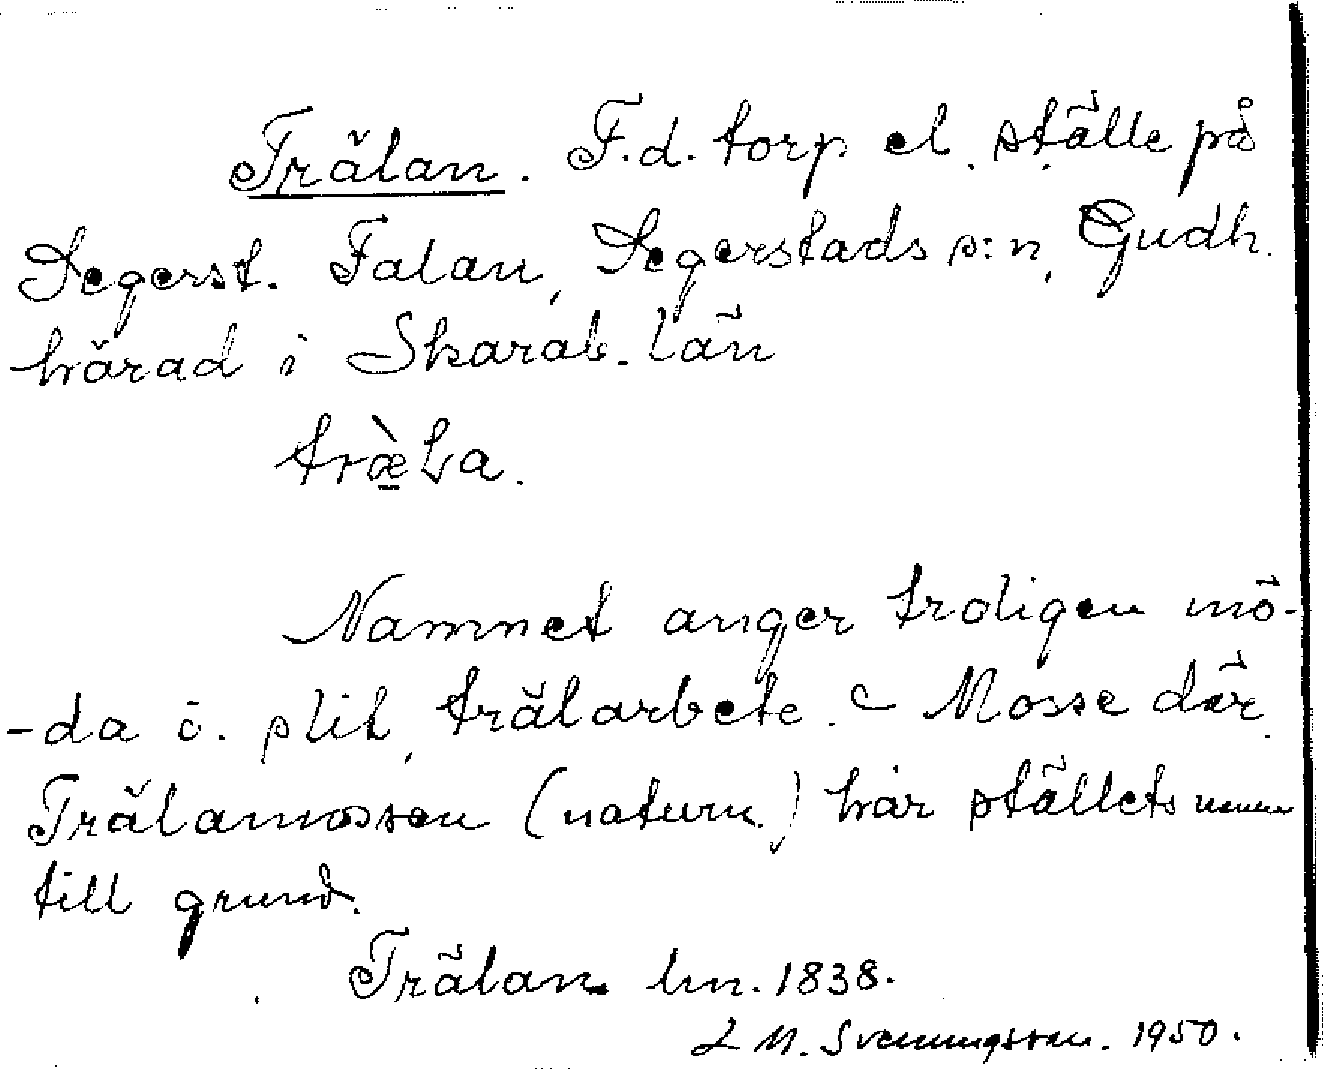 Trälan. F.d. torp el. ställe på
Segerst. Falan, Segerstads s:n, Gudh.
härad i Skarab. län
træ̀La.
Namnet anger troligen mö-
-da o. slit, trälarbete. – Mosse där
Trälamossen (naturn.) har ställets namn
till grund.
Trälan hm. 1838.
L M. Svenungsson. 1950.